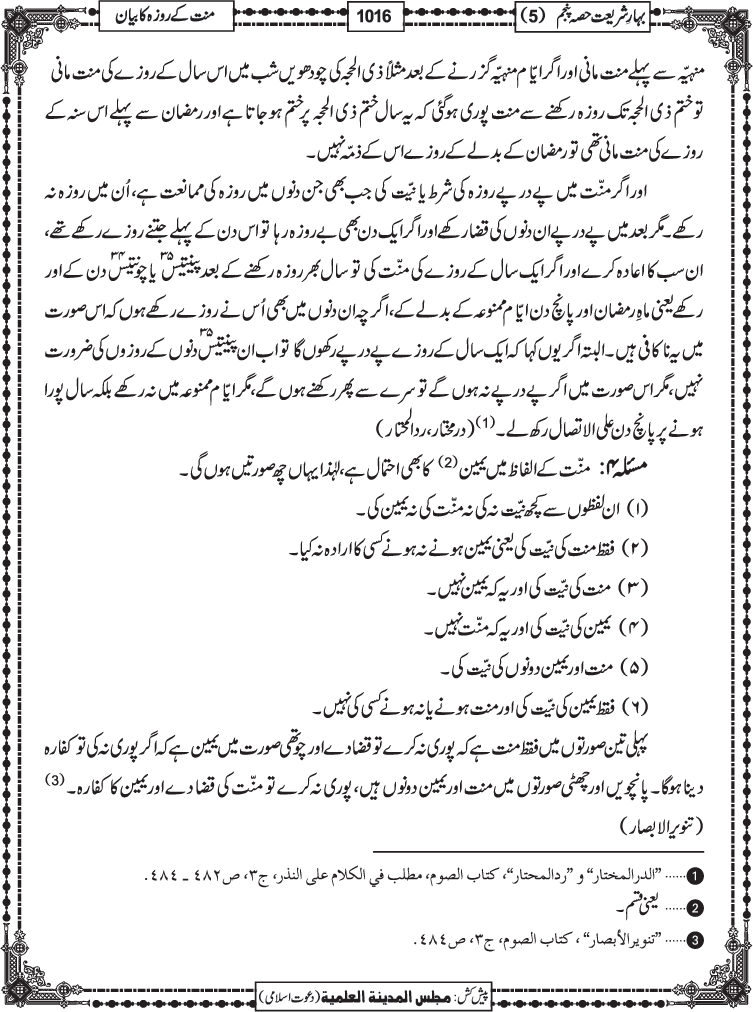 بہارِ شریعت حصہ پنجم (5)
1016
منت کے روزہ کا بیان
منہیّہ سے پہلے منت مانی اور اگر ایّام منہیّہ گزرنے کے بعد مثلاً ذی الحجہ کی چودھویں شب میں اس سال کے روزے کی منت مانی
تو ختم ذی الحجہ تک روزہ رکھنے سے منت پوری ہوگئی کہ یہ سال ختم ذی الحجہ پر ختم ہو جاتا ہے اور رمضان سے پہلے اس سنہ کے
روزے کی منت مانی تھی تو رمضان کے بدلے کے روزے اس کے ذمّہ نہیں۔
اور اگر منّت میں پے در پے روزہ کی شرط یا نیّت کی جب بھی جن دنوں میں روزہ کی ممانعت ہے، اُن میں روزہ نہ
رکھے۔ مگر بعد میں پے در پے ان دنوں کی قضا رکھے اور اگر ایک دن بھی بے روزہ رہا تو اس دن کے پہلے جتنے روزے رکھے تھے،
ان سب کا اعادہ کرے اور اگر ایک سال کے روزے کی منّت کی تو سال بھر روزہ رکھنے کے بعد پینتیس۳۵ یا چونتیس۳۴ دن کے اور
رکھے یعنی ماہِ رمضان اور پانچ دن ایّامِ ممنوعہ کے بدلے کے، اگرچہ ان دنوں میں بھی اُس نے روزے رکھے ہوں کہ اس صورت
میں یہ ناکافی ہیں۔ البتہ اگر یوں کہا کہ ایک سال کے روزے پے در پے رکھوں گا تو اب ان پینتیس۳۵ دنوں کے روزوں کی ضرورت
نہیں، مگر اس صورت میں اگر پے در پے نہ ہوں گے تو سرے سے پھر رکھنے ہوں گے، مگر ایّام ممنوعہ میں نہ رکھے بلکہ سال پورا
ہونے پر پانچ دن علی الاتصال رکھ لے۔(1) (درمختار، ردالمحتار)
مسئلہ ۴: منّت کے الفاظ میں یمین(2) کا بھی احتمال ہے، لہٰذا یہاں چھ صورتیں ہوں گی۔
(۱) ان لفظوں سے کچھ نیّت نہ کی نہ منّت کی نہ یمین کی۔
(۲) فقط منت کی نیّت کی یعنی یمین ہونے نہ ہونے کسی کا ارادہ نہ کیا۔
(۳) منت کی نیّت کی اور یہ کہ یمین نہیں۔
(۴) یمین کی نیّت کی اور یہ کہ منّت نہیں۔
(۵) منت اور یمین دونوں کی نیّت کی۔
(۶) فقط یمین کی نیّت کی اور منت ہونے یا نہ ہونے کسی کی نہیں۔
پہلی تین صورتوں میں فقط منت ہے کہ پوری نہ کرے تو قضا دے اور چوتھی صورت میں یمین ہے کہ اگر پوری نہ کی تو کفارہ
دینا ہوگا۔ پانچویں اور چھٹی صورتوں میں منت اور یمین دونوں ہیں، پوری نہ کرے تو منّت کی قضا دے اور یمین کا کفارہ۔(3)
(تنویر الابصار)
1 ...... "الدرالمختار" و "ردالمحتار"، کتاب الصوم، مطلب في الکلام علی النذر، ج۳، ص۴۸۲ ـ ۴۸۴.
2 ...... یعنی قسم۔
3 ...... "تنویرالأبصار"، کتاب الصوم، ج۳، ص۴۸۴.
پیش کش: مجلس المدینة العلمیة (دعوتِ اسلامی)